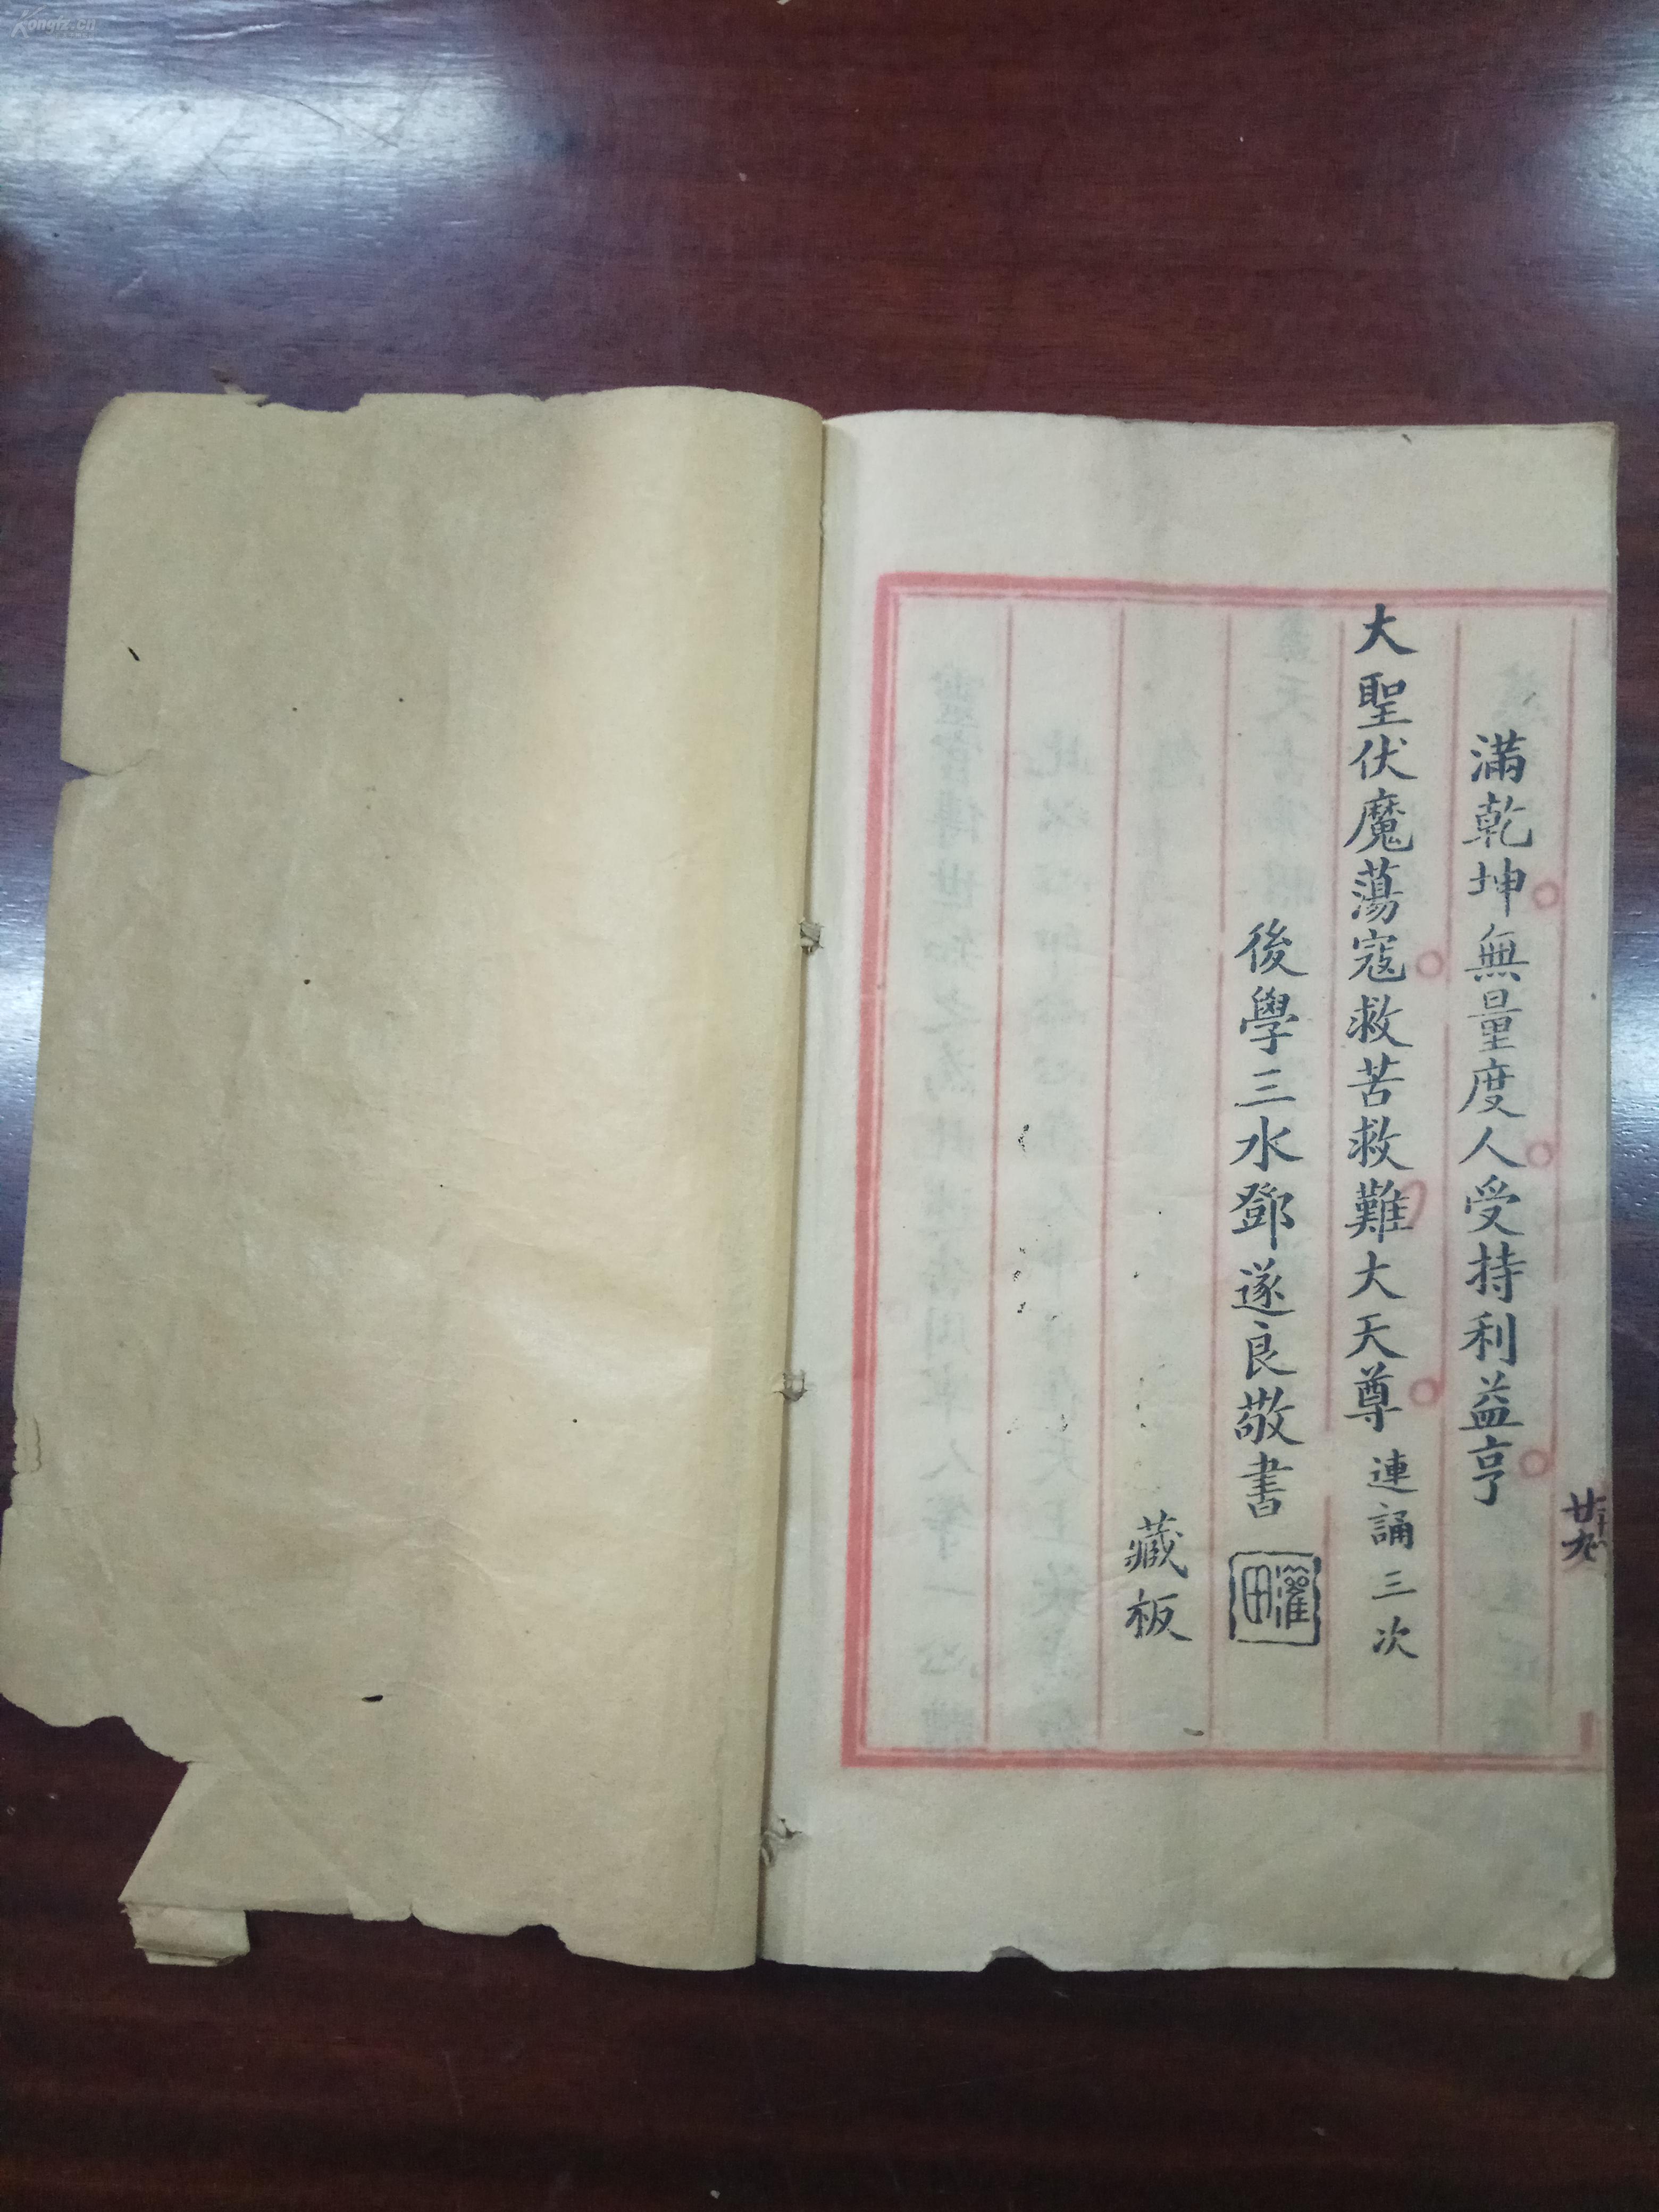 滿乾坤無量度人受持利益亨
大聖伏魔蕩寇救苦救難大天尊連誦三次
後學三水鄧遂良敬書
藏板
廿九
Kongfz.cn